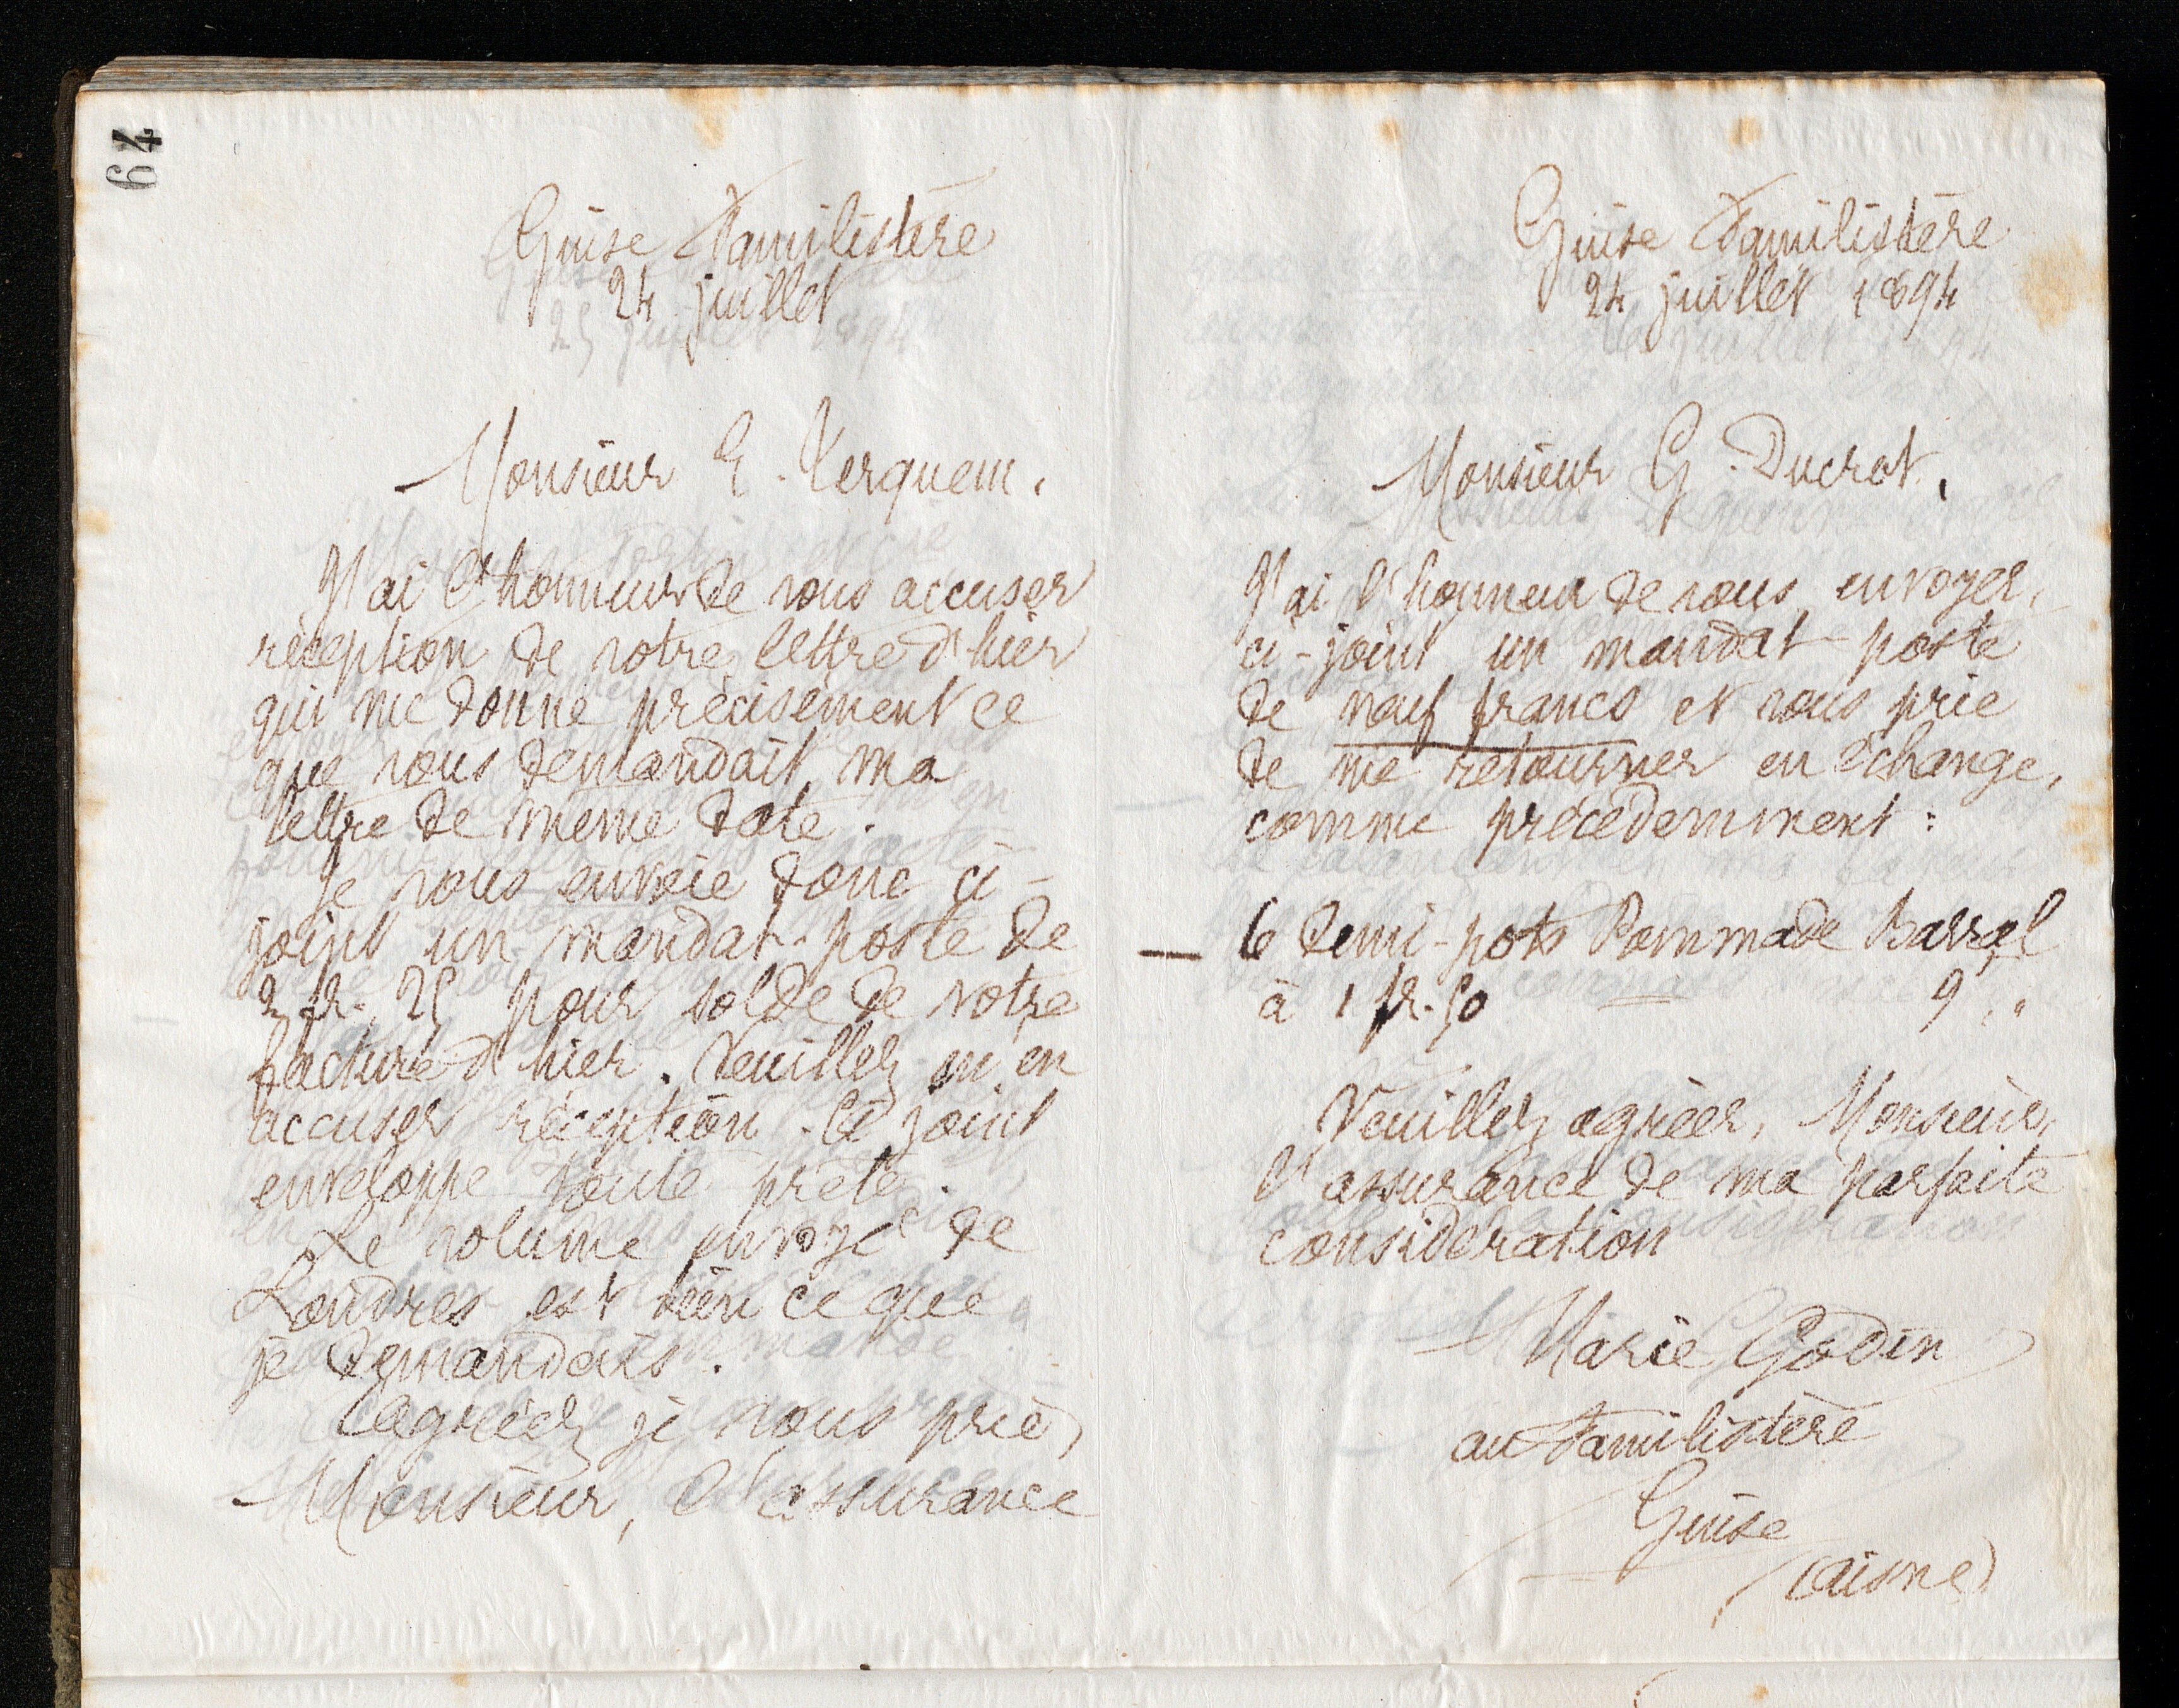 64
Guise Familistère
24 juillet
Monsieur E. Terquem.
J'ai l'honneur de vous accuser
réception de votre lettre d'hier
qui me donne précisément ce
que vous demandait ma
lettre de même date.
Je vous envoie donc ci-
joint un mandat-poste de
2 fr. 25 pour solde de votre
facture d'hier. Veuillez m'en
accuser réception. Ci joint
enveloppe toute prête.
Le volume envoyé de
Londres est bien ce que
je demandais.
Agréez, je vous prie,
Monsieur, l'assurance
Guise Familistère
24 juillet 1894
Monsieur G. Ducrot.
J'ai l'honneur de vous envoyer,
ci-joint un mandat-poste
de neuf francs et vous prie
de me retourner en échange,
comme précédemment :
— 6 demi-pots Pommade Barral
à 1 fr. 50 = 9 "
Veuillez agréer, Monsieur,
l'assurance de ma parfaite
considération
Marie Godin
au Familistère
Guise
(Aisne)